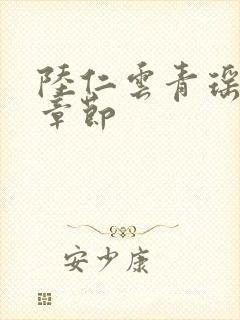 陸仁雲青瑶
章節
安少康